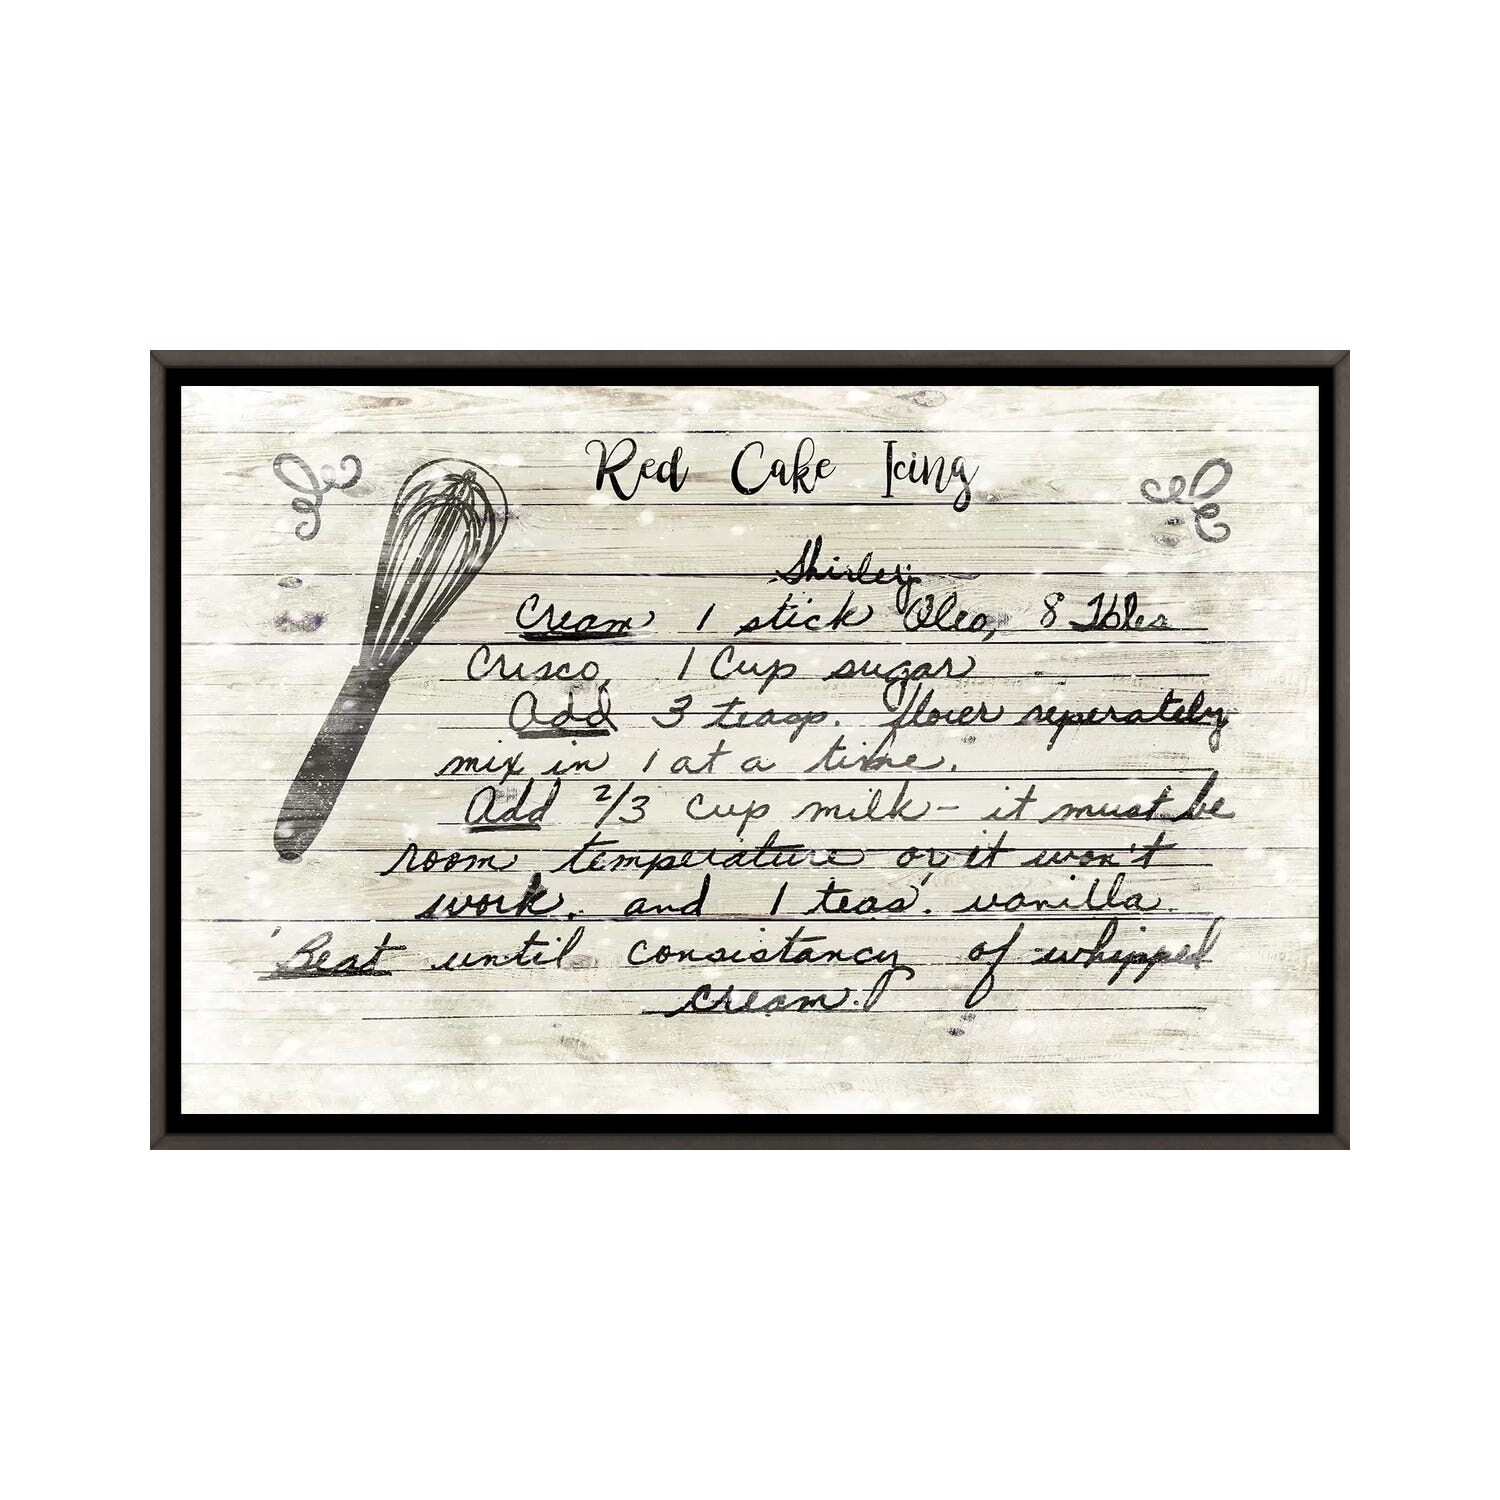 Red Cake Icing
Shirley
Cream 1 stick Oleo, 8 Tbles
Crisco, 1 Cup sugar
Add 3 teasp. flour seperately
mix in 1 at a time.
Add 2/3 cup milk - it must be
room temperature or it won't
work. and 1 teas. vanilla.
Beat until consistancy of whipped
cream.